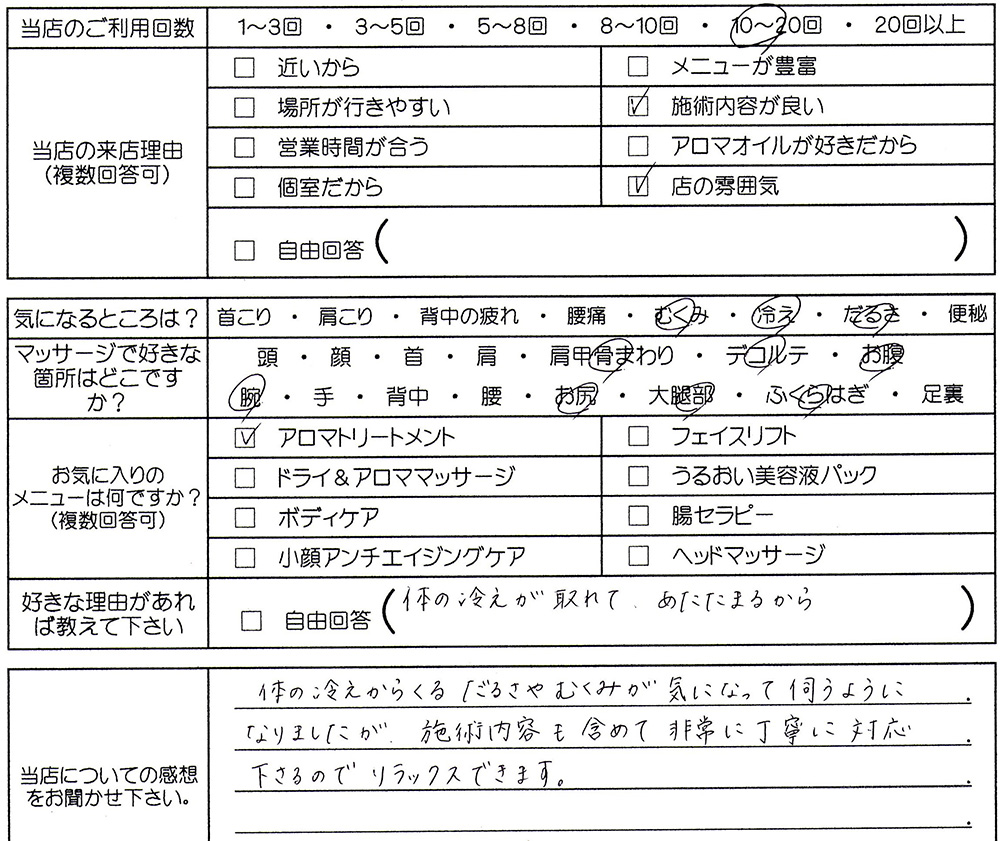 当店のご利用回数 1～3回 ・ 3～5回 ・ 5～8回 ・ 8～10回 ・ 10～20回 ・ 20回以上
当店の来店理由
（複数回答可）
□ 近いから
□ メニューが豊富
□ 場所が行きやすい
☑ 施術内容が良い
□ 営業時間が合う
□ アロマオイルが好きだから
□ 個室だから
☑ 店の雰囲気
□ 自由回答（ ）
気になるところは？ 首こり ・ 肩こり ・ 背中の疲れ ・ 腰痛 ・ むくみ ・ 冷え ・ だるさ ・ 便秘
マッサージで好きな
箇所はどこです
か？
頭 ・ 顔 ・ 首 ・ 肩 ・ 肩甲骨まわり ・ デコルテ ・ お腹
腕 ・ 手 ・ 背中 ・ 腰 ・ お尻 ・ 大腿部 ・ ふくらはぎ ・ 足裏
お気に入りの
メニューは何ですか？
（複数回答可）
☑ アロマトリートメント
□ フェイスリフト
□ ドライ＆アロママッサージ
□ うるおい美容液パック
□ ボディケア
□ 腸セラピー
□ 小顔アンチエイジングケア
□ ヘッドマッサージ
好きな理由があれ
ば教えて下さい
□ 自由回答（体の冷えが取れて、あたたまるから）
当店についての感想
をお聞かせ下さい。
体の冷えからくるだるさやむくみが気になって伺うように
なりましたが、施術内容も含めて非常に丁寧に対応
下さるのでリラックスできます。